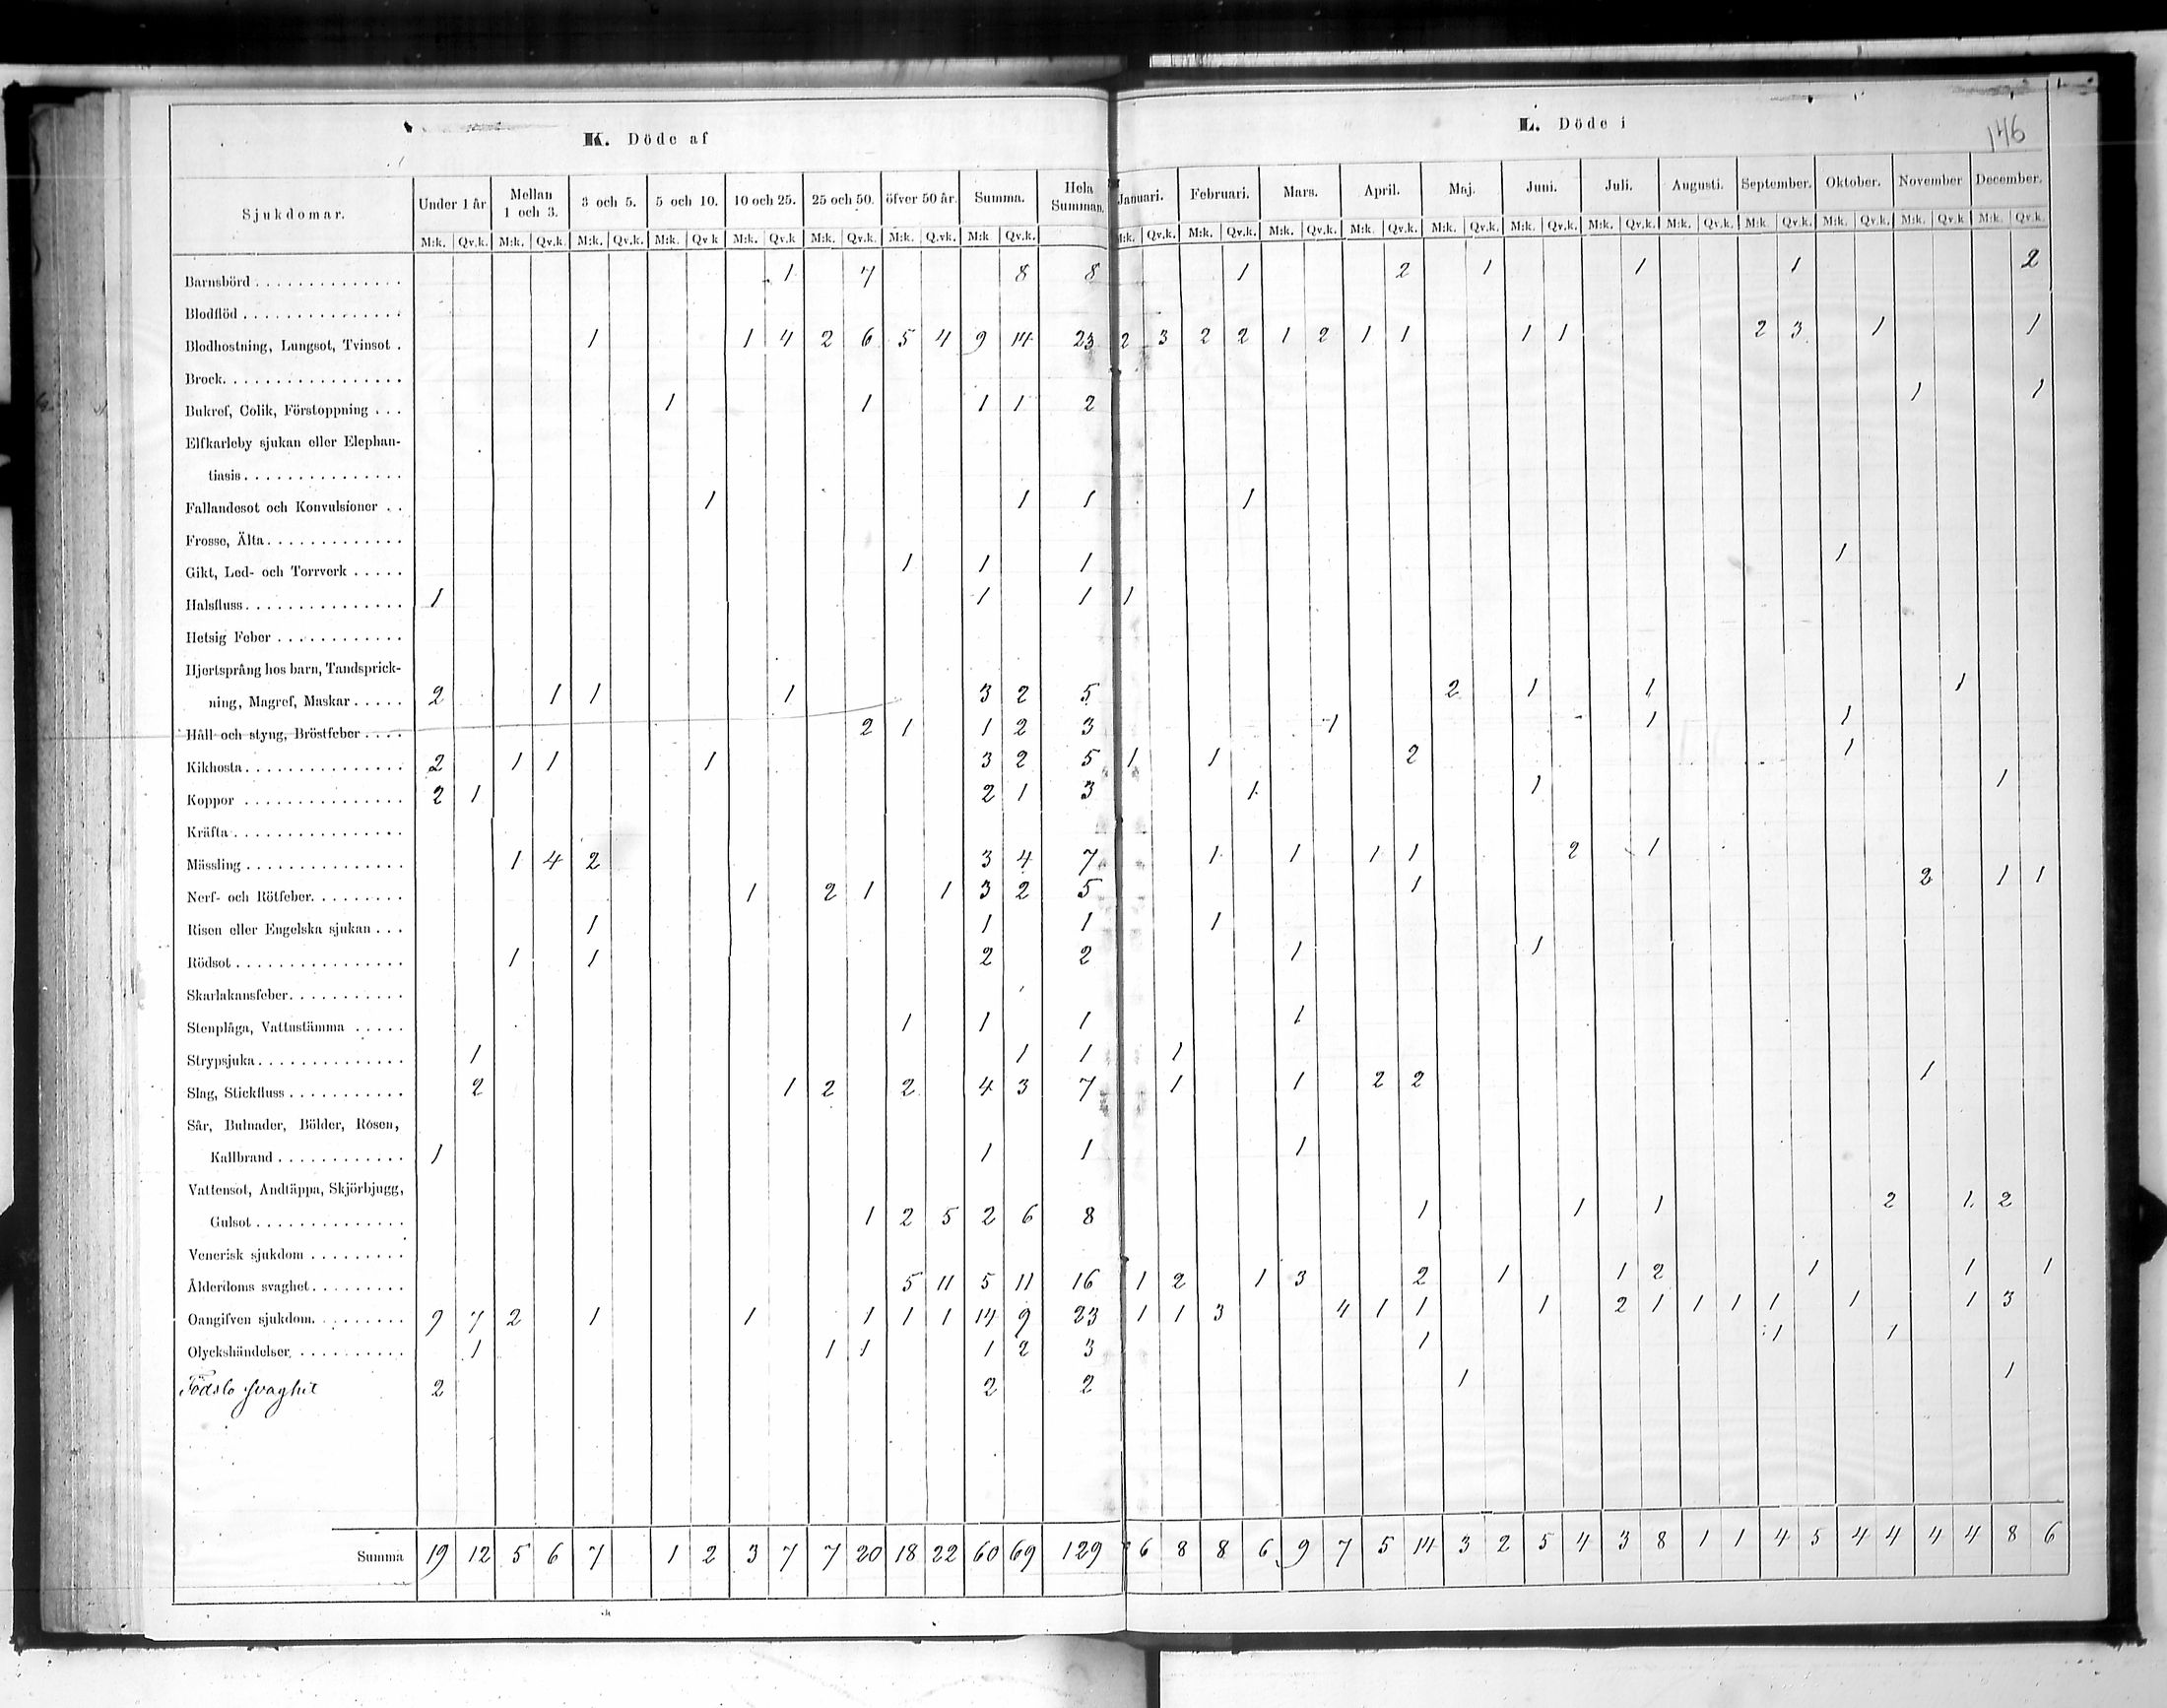 K. Döde af
L. Döde i
146
Sjukdomar. Under 1 år Mellan 1 och 3. 3 och 5. 5 och 10. 10 och 25. 25 och 50. öfver 50 år. Summa. Hela Summan. Januari. Februari. Mars. April. Maj. Juni. Juli. Augusti. September. Oktober. November December.
M:k. Qv.k. M:k. Qv.k. M:k. Qv.k. M:k. Qv k M:k. Qv.k M:k. Qv.k. M:k. Q.vk. M:k Qv.k. M:k. Qv.k. M:k. Qv.k. M:k. Qv.k. M:k. Qv.k. M:k. Qv.k. M:k. Qv.k. M:k. Qv.k. M:k. Qv.k. M:k Qv.k. M:k. Qv.k. M:k. Qv.k M:k. Qv.k.
Barnsbörd . . . 1 7 8 8 1 2 1 1 1 2
Blodflöd . . .
Blodhostning, Lungsot, Tvinsot . 1 1 4 2 6 5 4 9 14 23 2 3 2 2 1 2 1 1 1 1 2 3 1 1
Brock. . . .
Bukref, Colik, Förstoppning . . . 1 1 1 1 2 1 1
Elfkarleby sjukan eller Elephan-
tiasis . . .
Fallandesot och Konvulsioner . . 1 1 1 1
Frosse, Älta . . .
Gikt, Led- och Torrverk . . . 1 1 1 1
Halsfluss . . . 1 1 1 1
Hetsig Feber . . .
Hjertsprång hos barn, Tandsprick-
ning, Magref, Maskar . . . 2 1 1 1 3 2 5 2 1 1 1
Håll och styng, Bröstfeber . . . 2 1 1 2 3 1 1 1
Kikhosta . . . 2 1 1 1 3 2 5 1 1 2 1
Koppor . . . 2 1 2 1 3 1 1 1
Kräfta . . .
Mässling . . . 1 4 2 3 4 7 1 1 1 1 2 1
Nerf- och Rötfeber. . . . 1 2 1 1 3 2 5 1 2 1 1
Risen eller Engelska sjukan . . . 1 1 1 1
Rödsot . . . 1 1 2 2 1 1
Skarlakansfeber. . . .
Stenplåga, Vattustämma . . . 1 1 1 1
Strypsjuka . . . 1 1 1 1
Slag, Stickfluss . . . 2 1 2 2 4 3 7 1 1 2 2 1
Sår, Bulnader, Bölder, Rosen,
Kallbrand . . . 1 1 1 1
Vattensot, Andtäppa, Skjörbjugg,
Gulsot . . . 1 2 5 2 6 8 1 1 1 2 1 2
Venerisk sjukdom . . .
Ålderdoms svaghet . . . 5 11 5 11 16 1 2 1 3 2 1 1 2 1 1 1
Oangifven sjukdom. . . . 9 7 2 1 1 1 1 1 14 9 23 1 1 3 4 1 1 1 2 1 1 1 1 1 1 3
Olyckshändelser . . . 1 1 1 1 2 3 1 1 1
Födslo svaghet 2 2 2 1 1
Summa 19 12 5 6 7 1 2 3 7 7 20 18 22 60 69 129 6 8 8 6 9 7 5 14 3 2 5 4 3 8 1 1 4 5 4 4 4 4 8 6